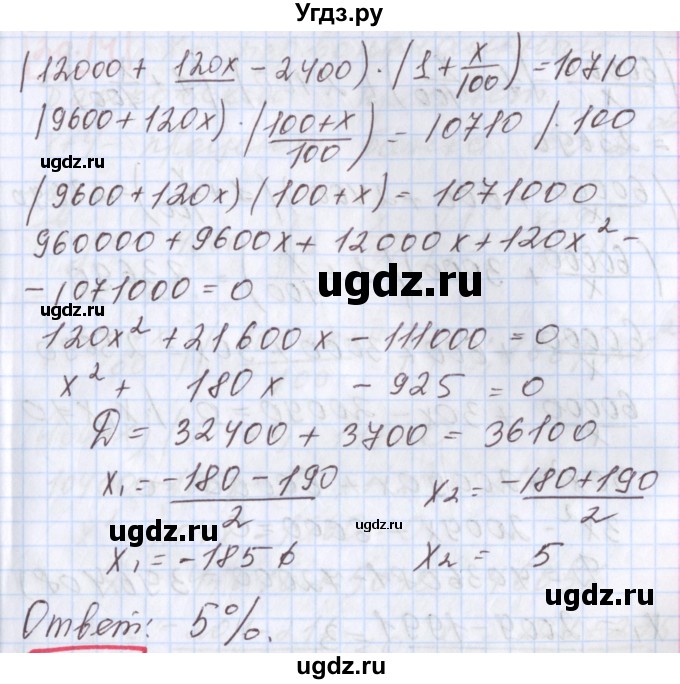 Угдз.ру
(12000 + 120x - 2400) · (1 + x/100) = 10710
(9600 + 120x) · ((100 + x)/100) = 10710 | · 100
ugdz.ru ugdz.ru
(9600 + 120x)(100 + x) = 1071000
960000 + 9600x + 12000x + 120x² -
- 1071000 = 0
ugdz.ru
120x² + 21600x - 111000 = 0
x² + 180x - 925 = 0
Д = 32400 + 3700 = 36100
x₁ = (-180 - 190)/2 x₂ = (-180 + 190)/2
ugdz.ru ugdz.ru
x₁ = -185 x₂ = 5
ugdz.ru ugdz.ru
Ответ: 5%.
ugdz.ru